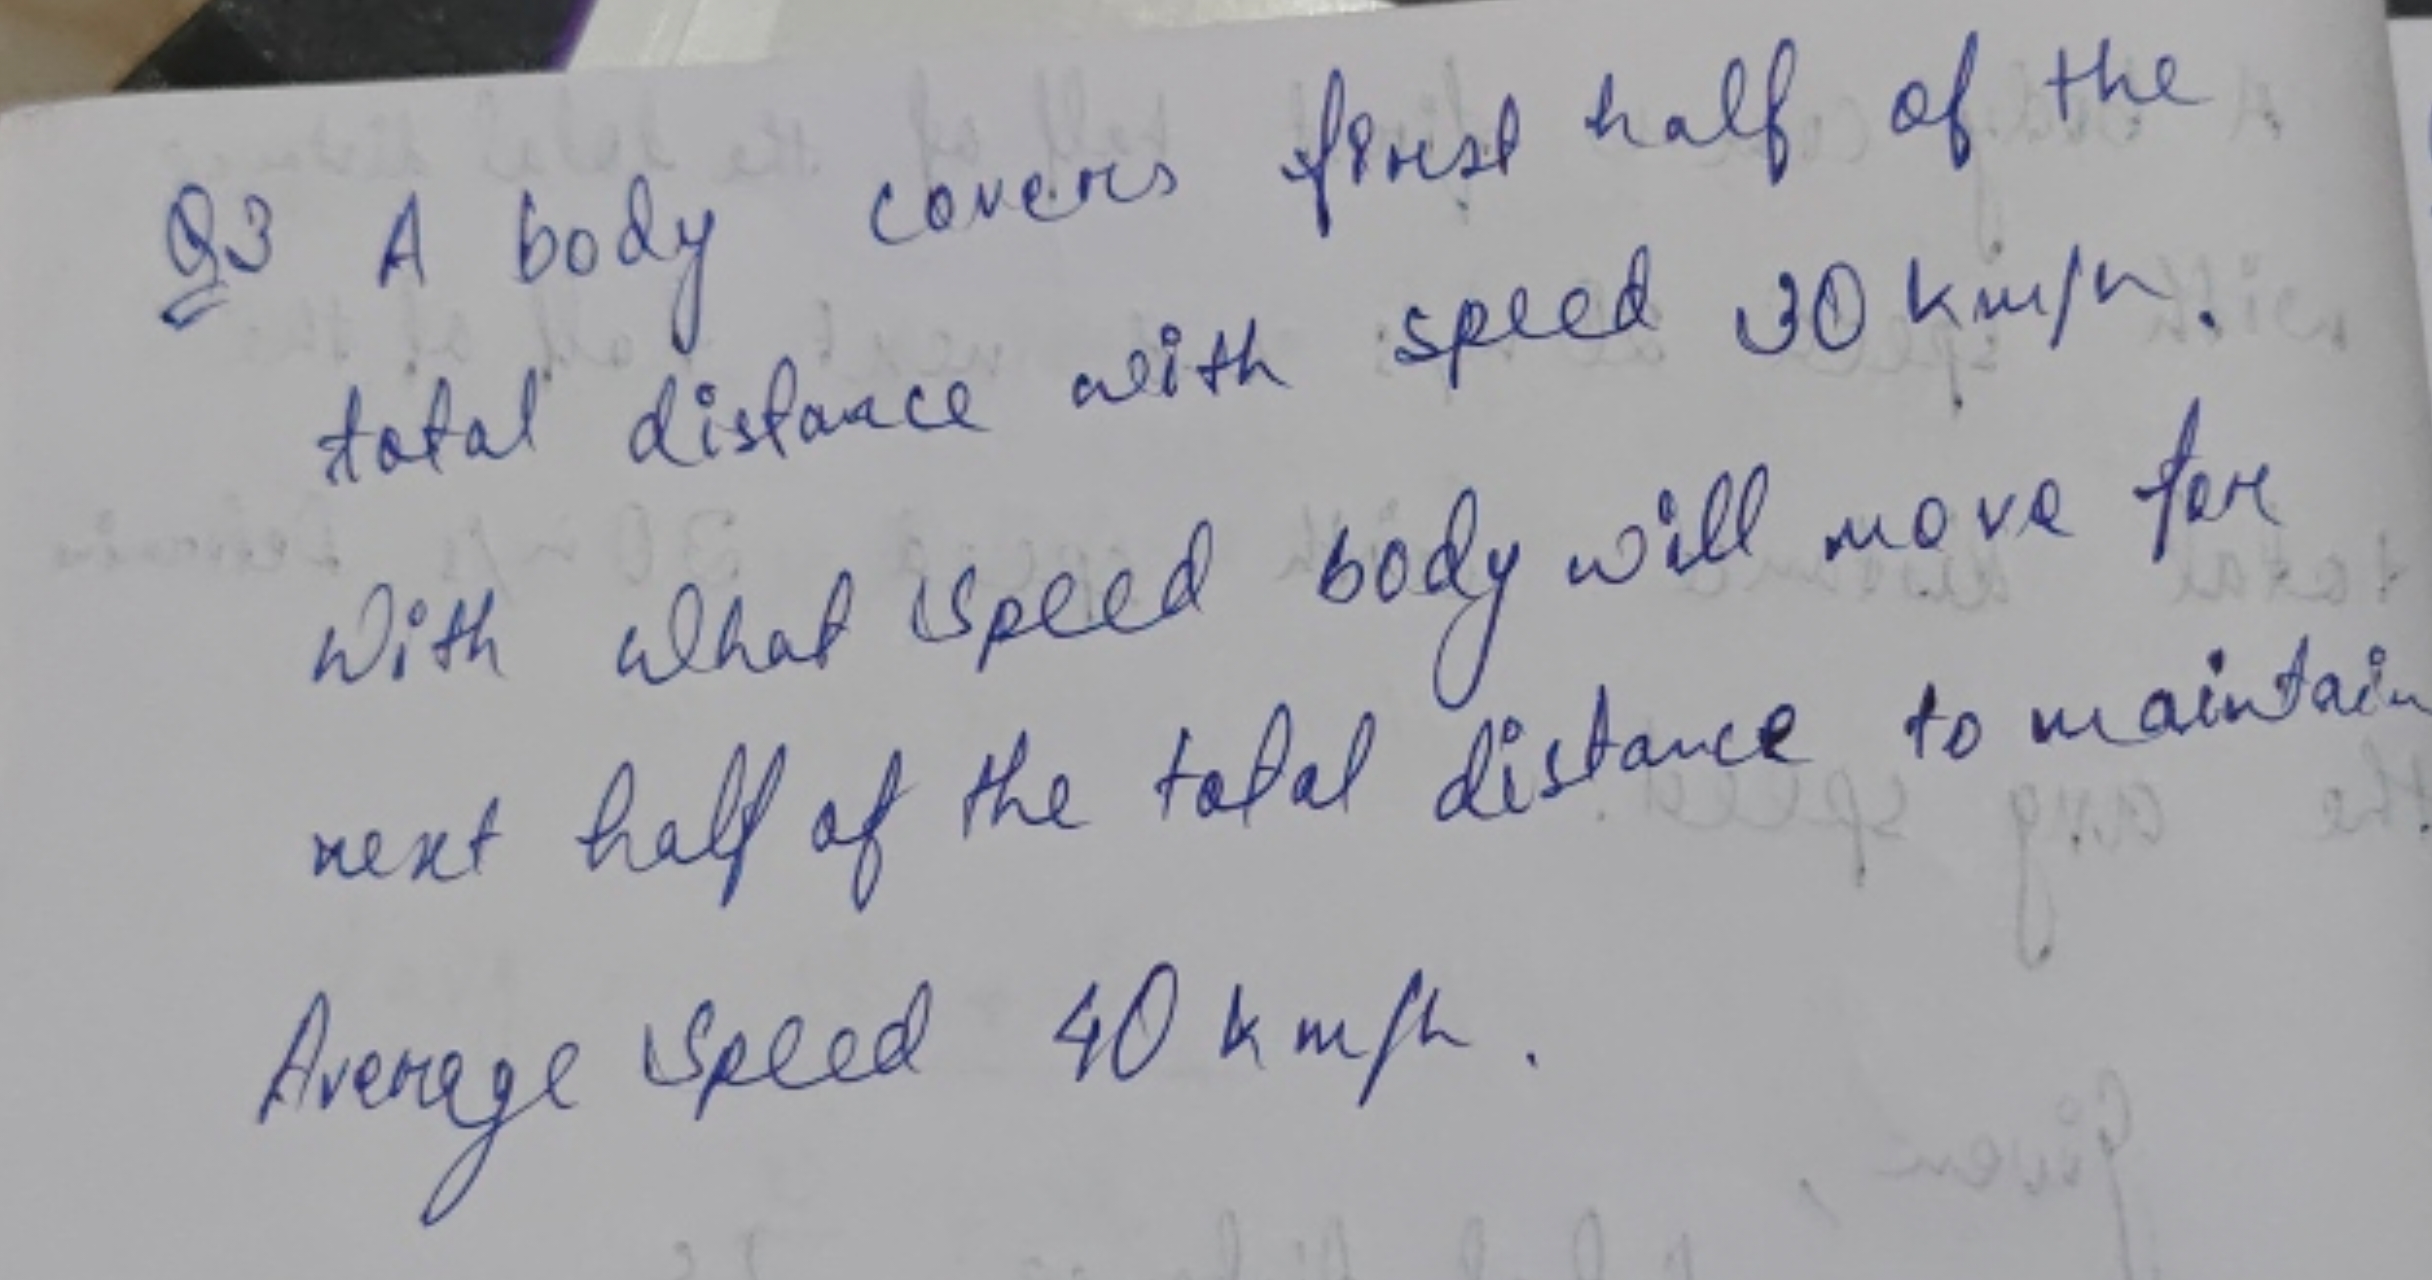 Q3 A body covers first half of the
total distance with speed 30 km/h.
With what speed body will move for
next half of the total distance to maintain
Average speed 40 km/h.